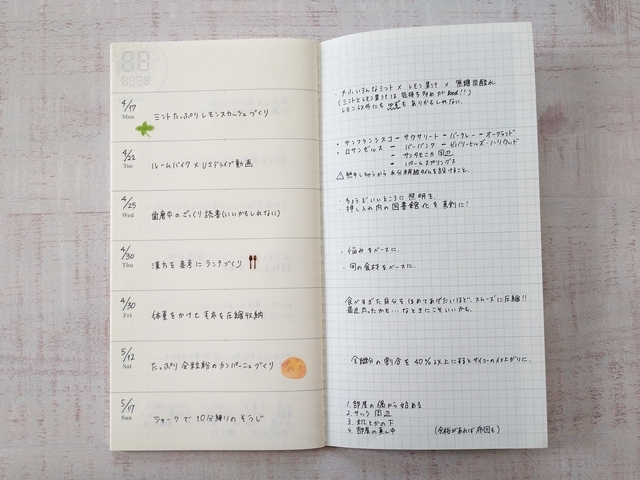 4/17
Mon
ミントたっぷりレモンスカッシュづくり
4/22
Tue
ルームバイク × USドライブ動画
4/25
Wed
歯磨中のざっくり読書(いいかもしれない)
4/30
Thu
漢方を参考にランチづくり
4/30
Fri
体重をかけて毛布を圧縮収納
5/12
Sat
たっぷり全粒粉のカンパーニュづくり
5/17
Sun
シャークで10分縛りのそうじ
・大小いろんなミント × レモン果汁 × 無糖炭酸水
(ミントとレモン果汁は気持ち多めが good!!)
レモン以外にも ありかもしれない。
・サンフランシスコ ― サウサリート ― バークレー ― オークランド
・ロサンゼルス ― バーバンク ― ビバリーヒルズ・ハリウッド
― サンタモニカ周辺
― パームスプリングス
熱中しちゃうから水分補給タイムを設けること。
・ちょうどいいところに照明を。
押し入れ内の図書館化を真剣に!
・悩みをベースに。
・旬の食材をベースに。
食べすぎた自分をほめてあげたいほど、スムーズに圧縮!!
最近太ったかも…なときにこそいいかも。
全粒粉の割合を40%以上にするとサイコーの仕上がりに。
1. 部屋の隅から始める
2. サッシ周辺
3. 机とかの下
4. 部屋の真ん中 (余裕があれば布団も)